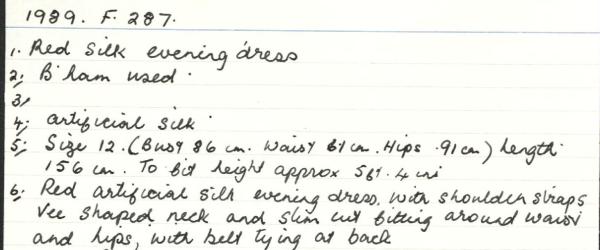 1989. F. 287.
1. Red silk evening dress
2. B'ham used.
3.
4. artificial silk.
5. Size 12. (Bust 86 cm. Waist 61 cm. Hips .91 cm) length
156 cm. To fit height approx 5ft. 4 ins
6. Red artificial silk evening dress, with shoulder straps
Vee shaped neck and slim cut fitting around waist
and hips, with belt tying at back